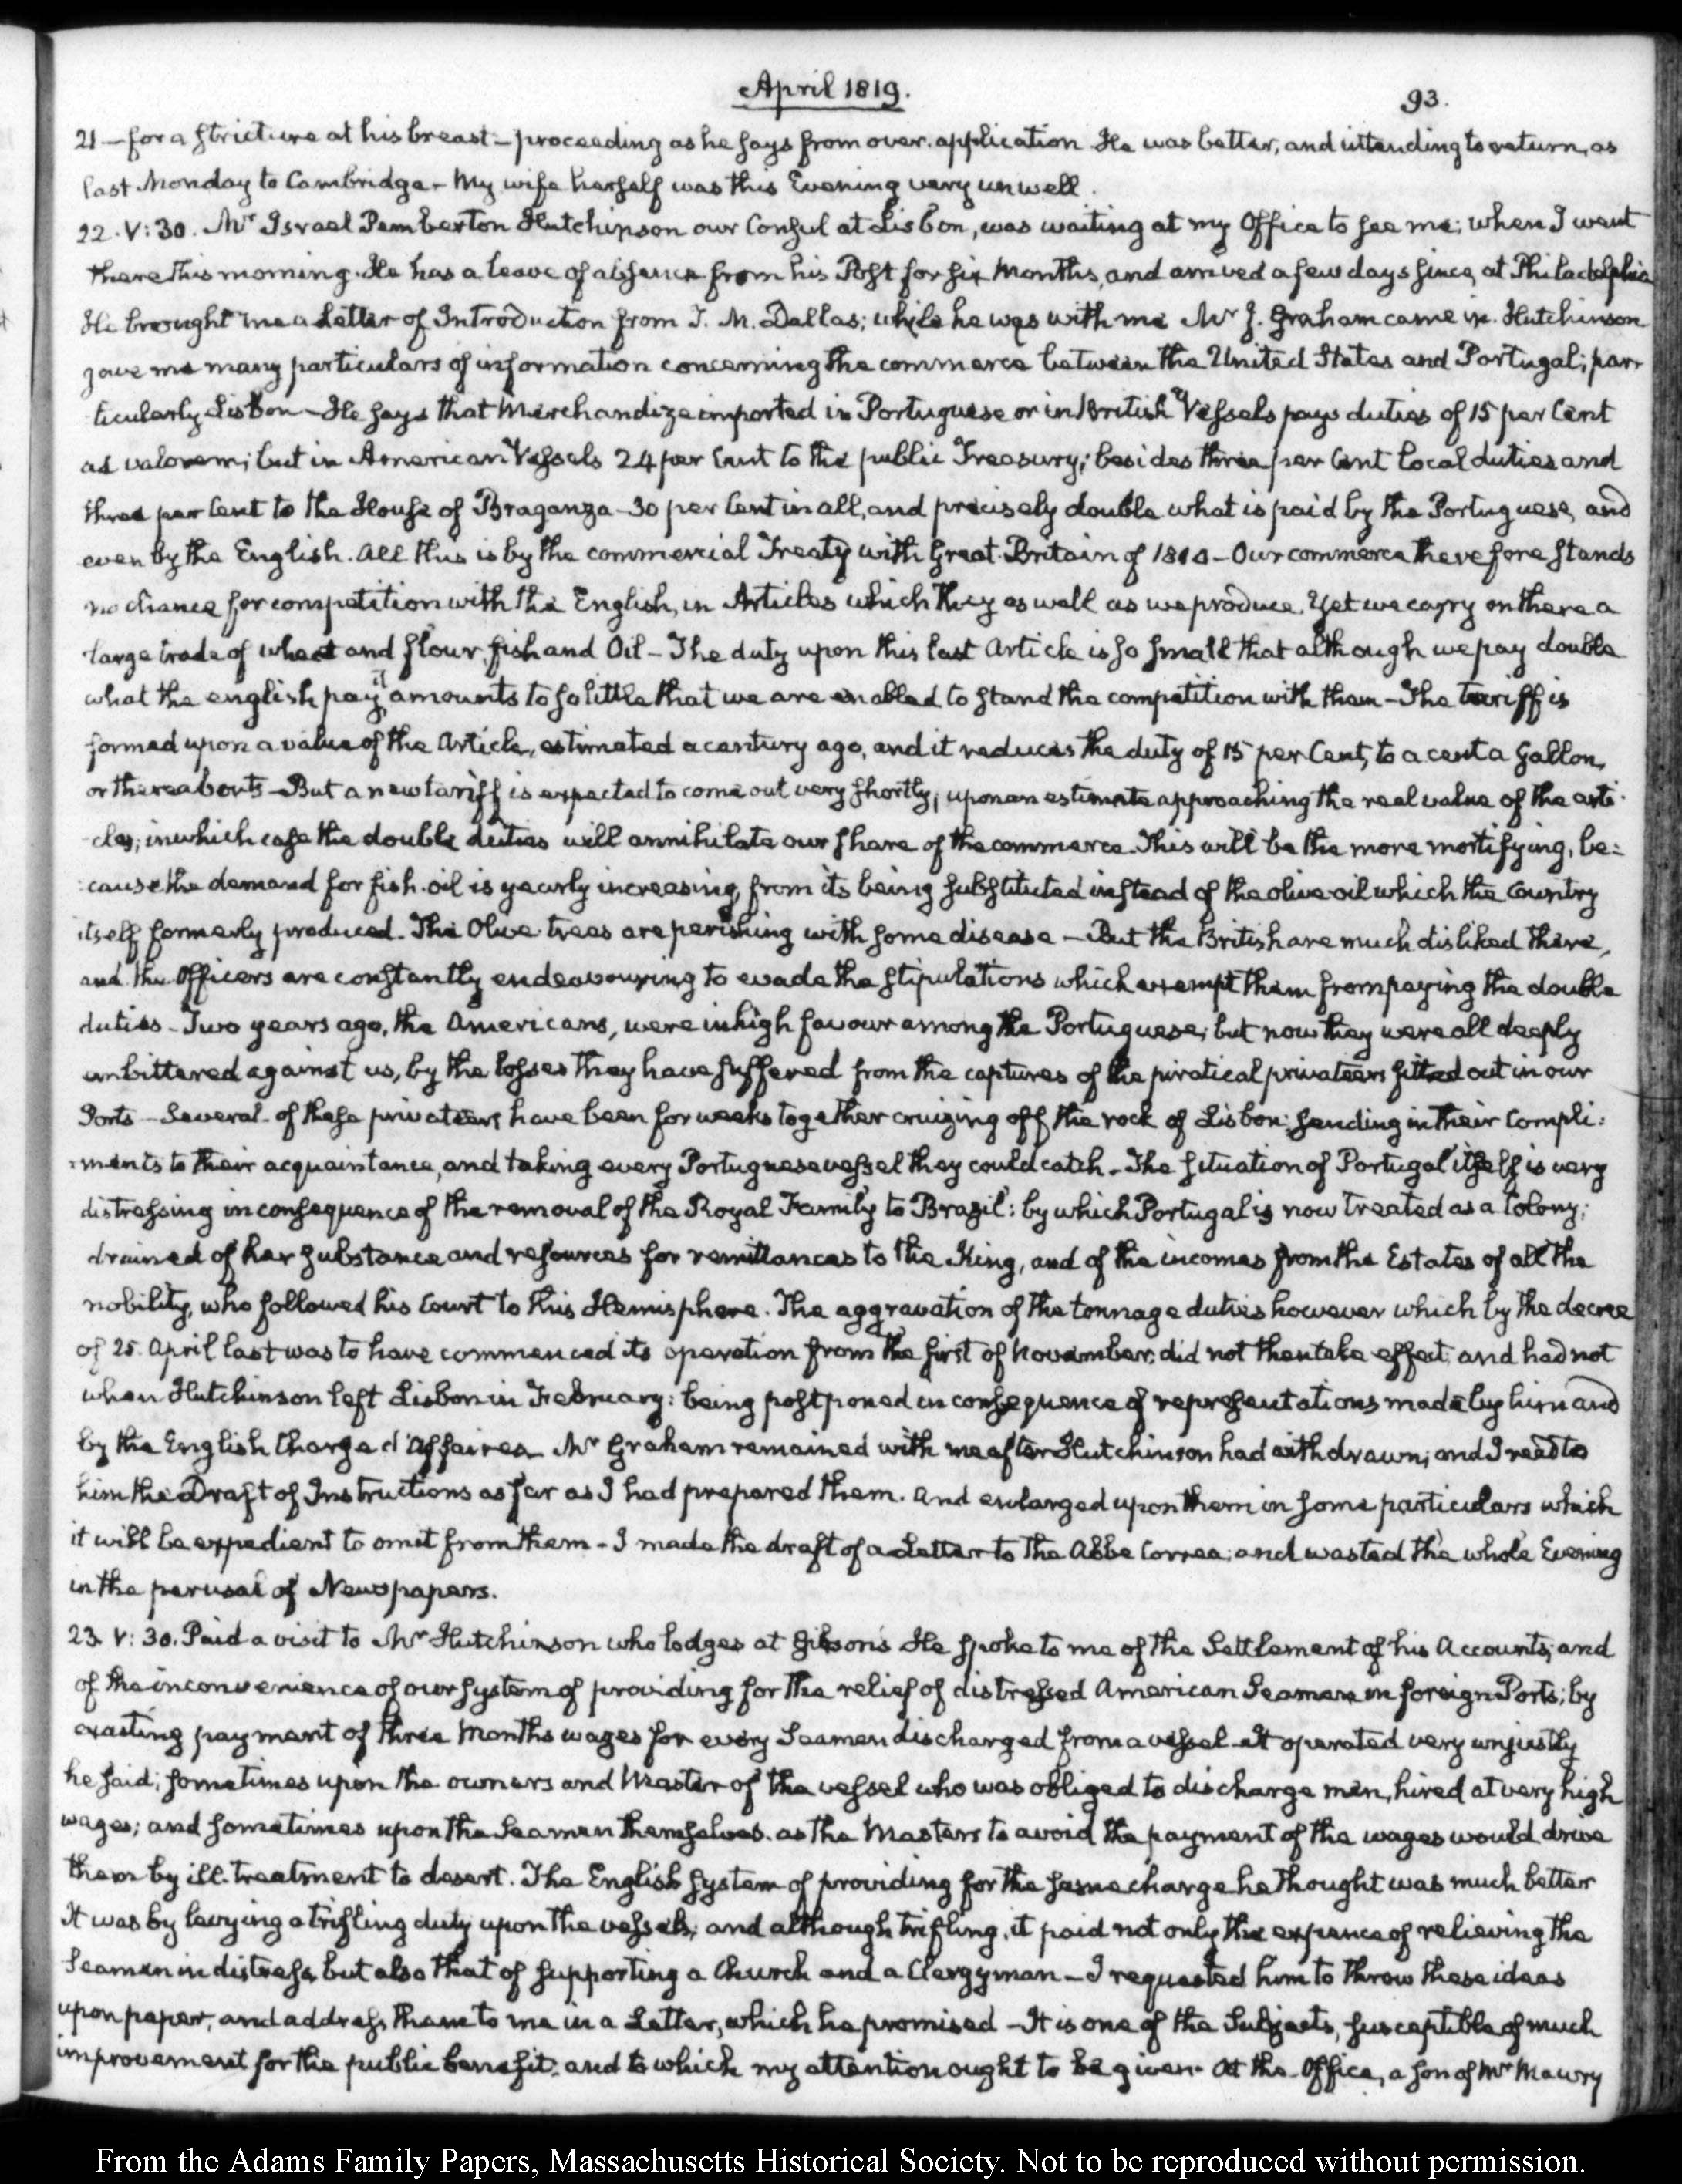 April 1819.
93.
21 — for a stricture at his breast — proceeding as he says from over-application He was better, and intending to return, as
last Monday to Cambridge — My wife herself was this Evening very unwell.
22. V:30. Mr Israel Pemberton Hutchinson our Consul at Lisbon, was waiting at my Office to see me; when I went
there this morning. He has a leave of absence from his Post for six Months, and arrived a few days since, at Philadelphia
He brought me a Letter of Introduction from T. M. Dallas; while he was with me Mr J. Graham came in. Hutchinson
gave me many particulars of information concerning the commerce between the United States and Portugal; par-
ticularly Lisbon — He says that Merchandize imported in Portuguese or in British Vessels pays duties of 15 per Cent
ad valorem; but in American Vessels 24 per Cent to the public Treasury; besides three per Cent local duties and
three per Cent to the House of Braganza — 30 per Cent in all, and precisely double what is paid by the Portuguese, and
even by the English. All this is by the commercial Treaty with Great-Britain of 1810 — Our commerce therefore stands
no chance for competition with the English, in Articles which they as well as we produce. Yet we carry on there a
large trade of wheat and flour, fish and Oil — The duty upon this last Article is so small that although we pay double
what the english pay it amounts to so little that we are enabled to stand the competition with them — The tariff is
formed upon a value of the Article, estimated a century ago, and it reduces the duty of 15 per Cent, to a cent a Gallon,
or thereabouts — But a new tariff is expected to come out very shortly, upon an estimate approaching the real value of the arti-
-cles; in which case the double duties will annihilate our share of the commerce. This will be the more mortifying, be:
:cause the demand for fish-oil is yearly increasing, from its being substituted instead of the olive-oil which the Country
itself formerly produced. The Olive-trees are perishing with some disease — But the British are much disliked there,
and the Officers are constantly endeavouring to evade the stipulations which exempt them from paying the double
duties — Two years ago, the Americans, were in high favour among the Portuguese; but now they were all deeply
embittered against us, by the losses they have suffered from the captures of the piratical privateers fitted out in our
Ports — Several of these privateers have been for weeks together cruizing off the rock of Lisbon; sending in their Compli:
:ments to their acquaintance, and taking every Portuguese vessel they could catch — The situation of Portugal itself is very
distressing in consequence of the removal of the Royal Family to Brazil: by which Portugal is now treated as a Colony;
drained of her substance and resources for remittances to the King, and of the incomes from the Estates of all the
nobility, who followed his Court to this Hemisphere. The aggravation of the tonnage duties however which by the decree
of 25. April last was to have commenced its operation from the first of November, did not then take effect, and had not
when Hutchinson left Lisbon in February: being postponed in consequence of representations made by him and
by the English Charge d'Affaires — Mr Graham remained with me after Hutchinson had withdrawn; and I read to
him the Draft of Instructions as far as I had prepared them. And enlarged upon them in some particulars which
it will be expedient to omit from them — I made the draft of a Letter to the Abbe Correa; and wasted the whole Evening
in the perusal of Newspapers.
23. V:30. Paid a visit to Mr Hutchinson who lodges at Gibson's He spoke to me of the Settlement of his Accounts, and
of the inconvenience of our system of providing for the relief of distressed American Seamen in foreign Ports; by
exacting payment of three Months wages for every Seaman discharged from a vessel — It operated very unjustly
he said; sometimes upon the owners and Master of the vessel who was obliged to discharge men, hired at very high
wages; and sometimes upon the Seamen themselves. as the Masters to avoid the payment of the wages would drive
them by ill-treatment to desert. The English system of providing for the same charge he thought was much better
It was by levying a trifling duty upon the vessels; and although trifling, it paid not only the expence of relieving the
Seamen in distress, but also that of supporting a Church and a Clergyman — I requested him to throw these ideas
upon paper, and address them to me in a Letter, which he promised — It is one of the Subjects, susceptible of much
improvement for the public benefit. and to which my attention ought to be given — At the Office, a son of Mr Maury
From the Adams Family Papers, Massachusetts Historical Society. Not to be reproduced without permission.